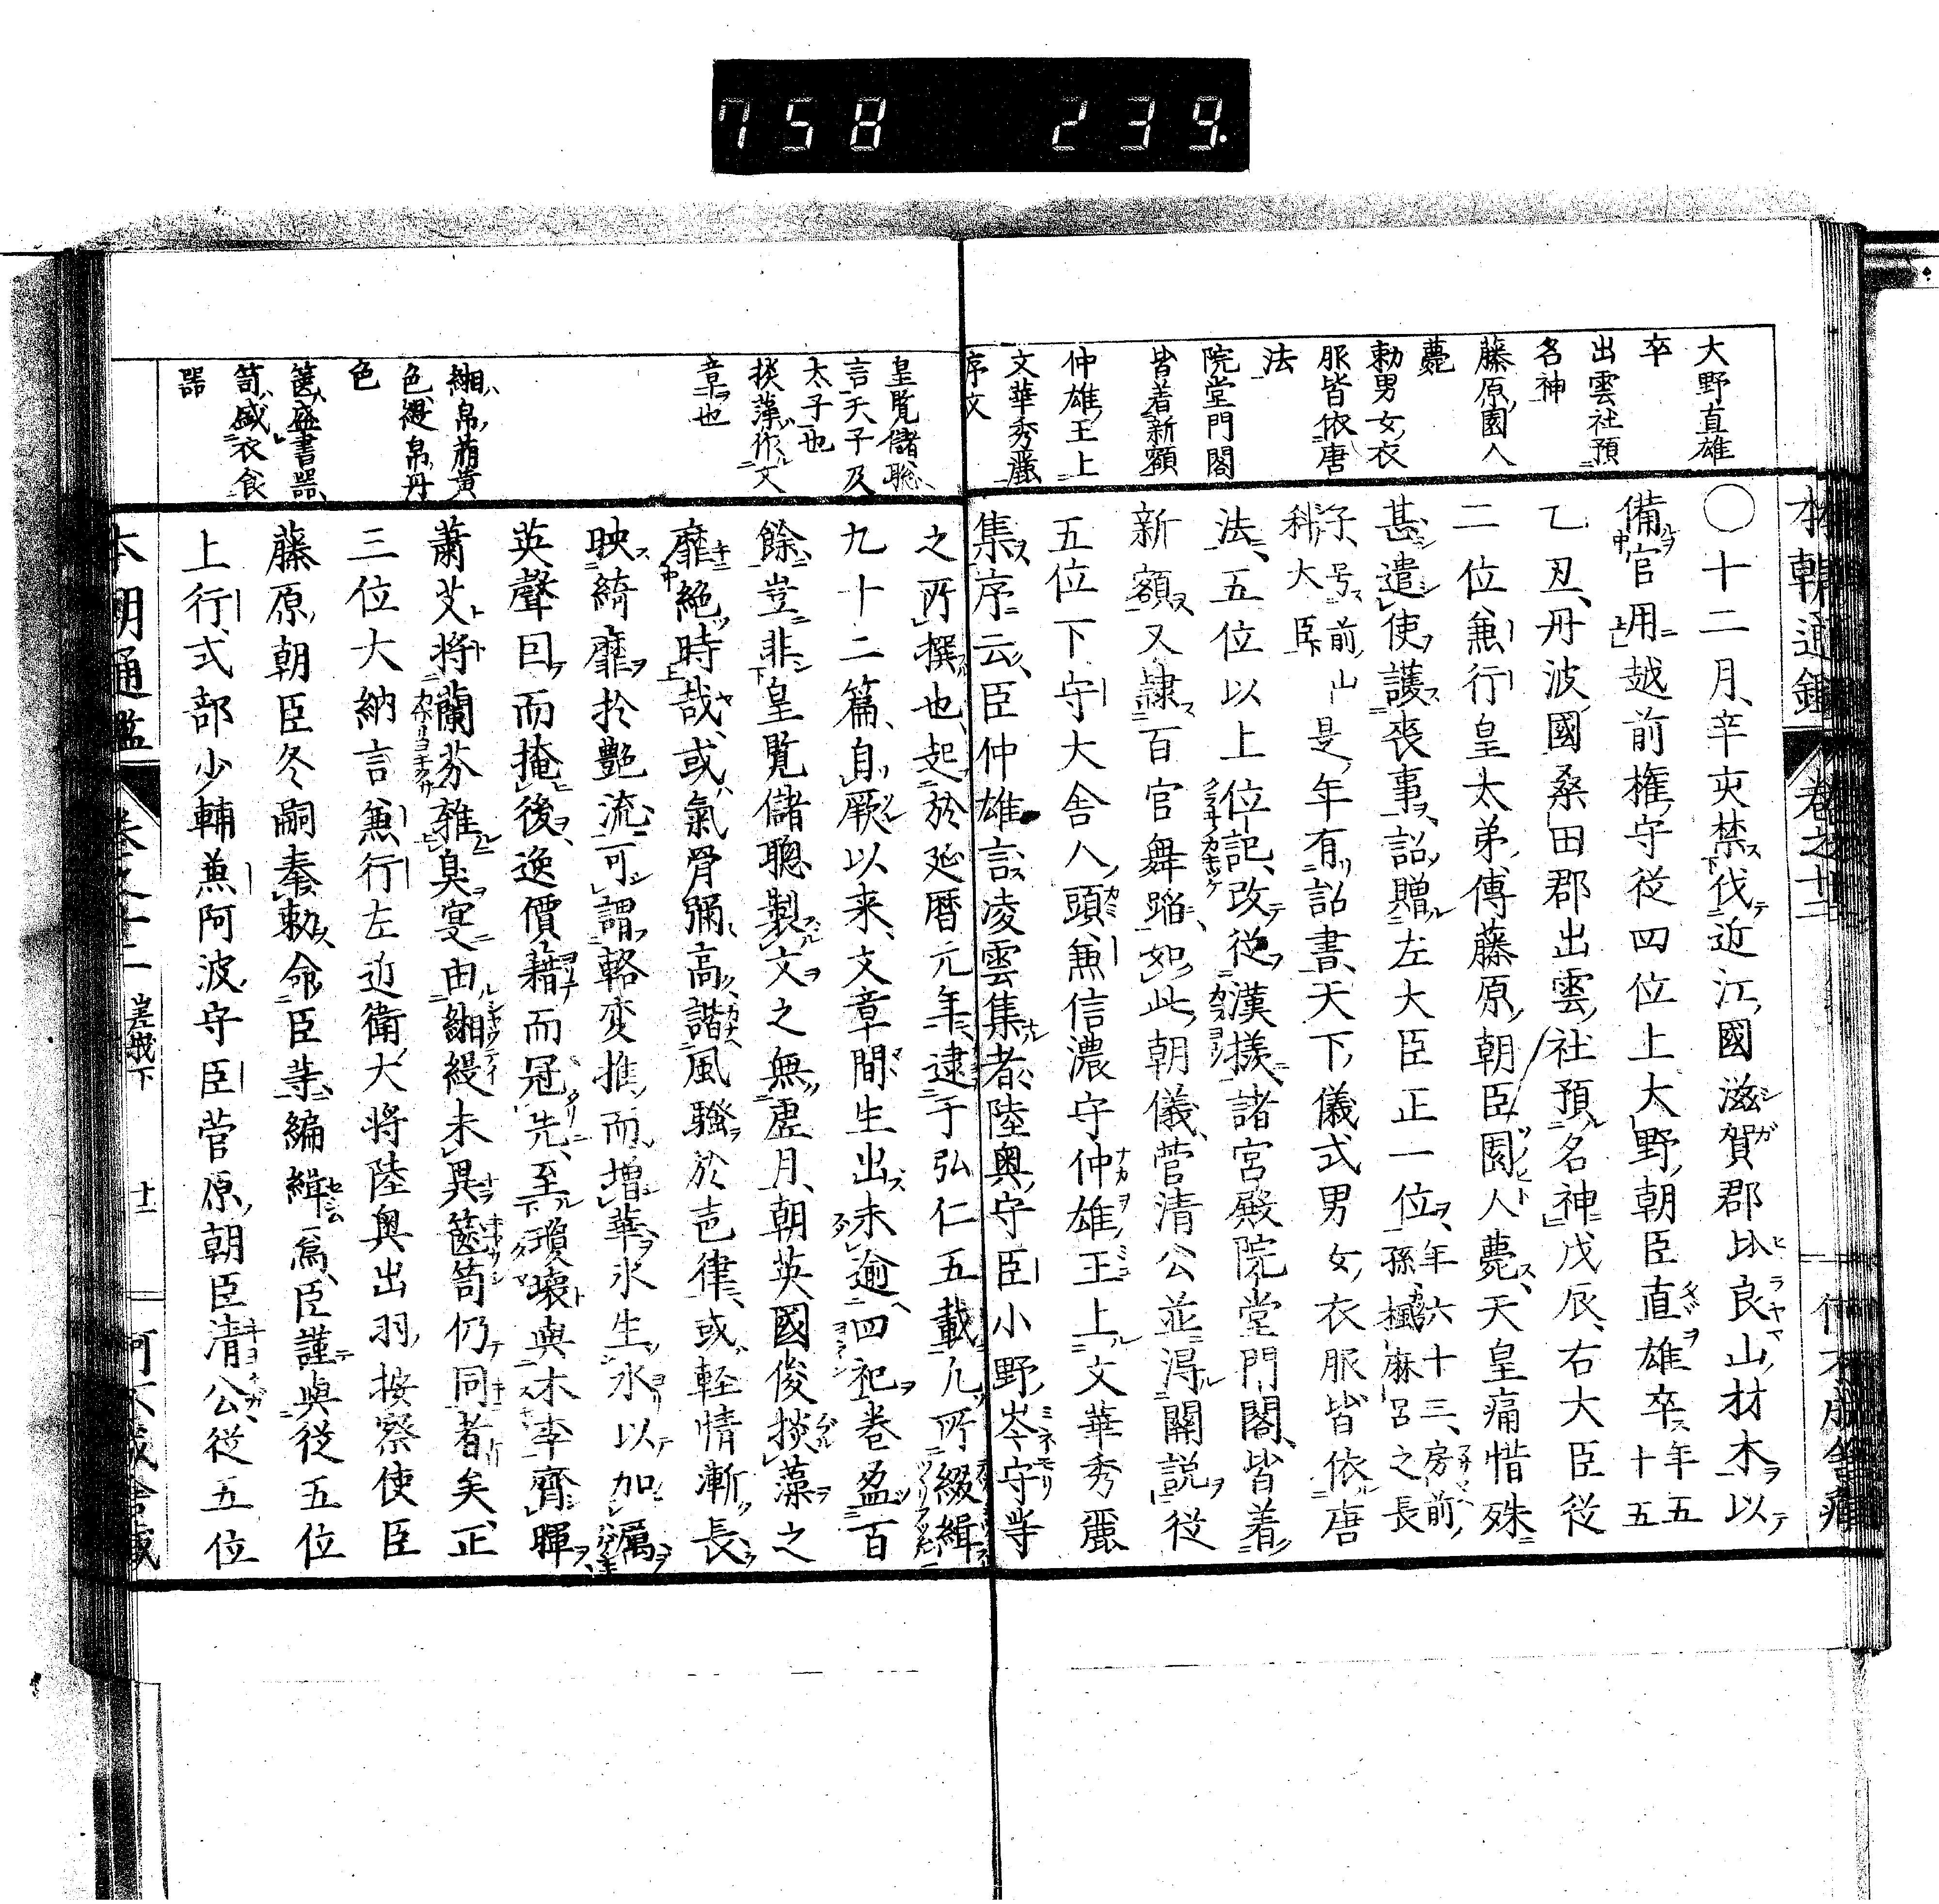 758 239.
大野直雄
卒
出雲社預
名神
藤原園人
薨
勅男女衣
服皆依唐
法
院堂門閣
皆着新額
仲雄王上
文華秀麗
序文
本朝通鑑 卷之十二
〇十二月、辛亥禁伐近江國滋賀郡比良山材木以
備官用越前權守從四位上大野朝臣直雄卒年五十五
乙丑、丹波國桑田郡出雲社預名神戊辰、右大臣從
二位兼行皇太弟傅藤原朝臣園人薨、天皇痛惜殊
甚遣使護喪事、詔贈左大臣正一位、年六十三、房前孫楓麻呂之長
子、号前山科大臣是年有詔書、天下儀式男女衣服皆依唐
法、五位以上位記、改從漢樣、諸宮殿院堂門閣、皆着
新額又肄百官舞蹈、如此朝儀、菅清公並得關說從
五位下守大舍人頭兼信濃守仲雄王上文華秀麗
集序云、臣仲雄言、凌雲集者、陸奧守臣小野岑守等
之所撰也、起於延曆元年、逮于弘仁五載凢所綴緝
九十二篇、自厥以来、文章間生出未逾四祀卷盈百
餘豈非皇覽儲聰製文之無虛月、朝英國俊掞藻之
靡絶時哉、或氣骨弥高諧風騷於壱律、或輕情漸長、
映綺靡於艷流、可謂輅変推而增華氷生水以加厲
英聲因而掩後、逸價藉而冠先、至瓊瓌與木李齊暉、
蕭艾將蘭芬雜臭寔由緗緹未異篋笥仍同者矣、正
三位大納言兼行左近衛大将陸奥出羽按察使臣
藤原朝臣冬嗣奉勅命臣等編緝焉、臣謹與從五位
上行式部少輔兼阿波守臣菅原朝臣清公、從五位
皇覽儲聰、
言天子及
太子也
掞藻作文
章也
緗帛、薄黄
色、緹帛、丹
色
篋盛書器、
笥盛衣食
器
本朝通鑑 卷之十二 嵯峨下 十二